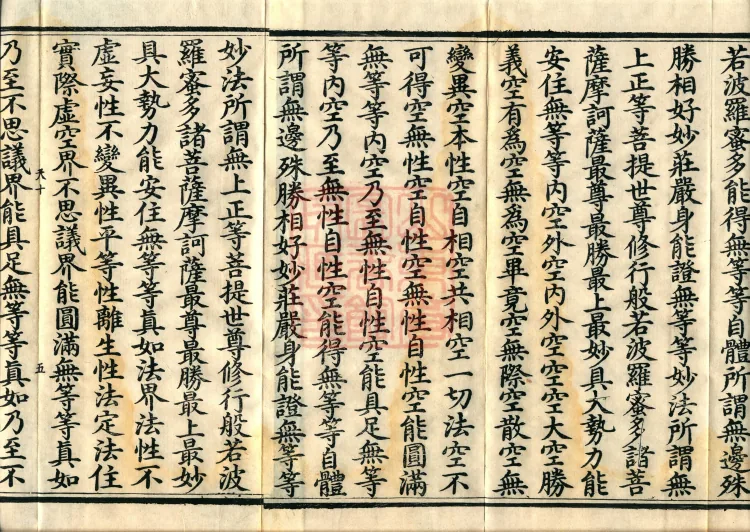 若波羅蜜多能得無等等自體所謂無邊殊
勝相好妙莊嚴身能證無等等妙法所謂無
上正等菩提世尊修行般若波羅蜜多諸菩
薩摩訶薩最尊最勝最上最妙具大勢力能
安住無等等內空外空內外空空空大空勝
義空有為空無為空畢竟空無際空散空無
變異空本性空自相空共相空一切法空不
可得空無性空自性空無性自性空能圓滿
無等等內空乃至無性自性空能具足無等
等內空乃至無性自性空能得無等等自體
所謂無邊殊勝相好妙莊嚴身能證無等等
妙法所謂無上正等菩提世尊修行般若波
羅蜜多諸菩薩摩訶薩最尊最勝最上最妙
具大勢力能安住無等等真如法界法性不
虛妄性不變異性平等性離生性法定法住
實際虛空界不思議界能圓滿無等等真如
天十 五
乃至不思議界能具足無等等真如乃至不